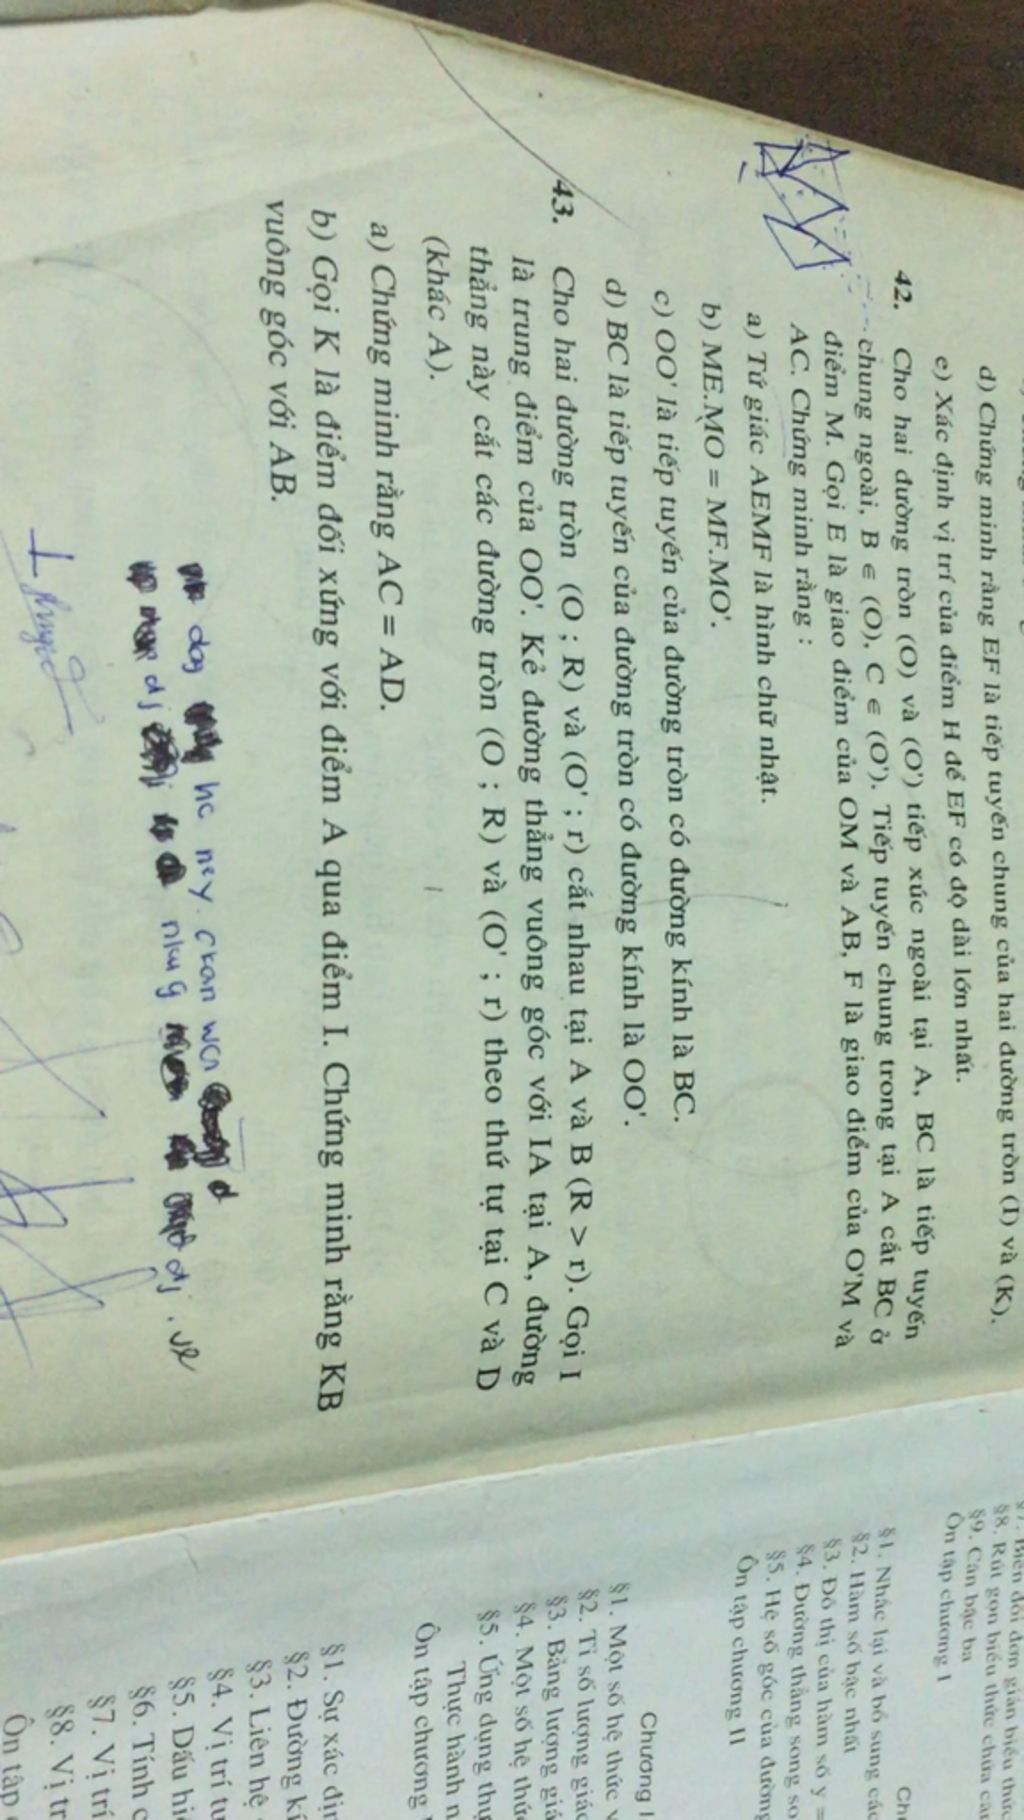 d) Chứng minh rằng EF là tiếp tuyến chung của hai đường tròn (I) và (K).
e) Xác định vị trí của điểm H để EF có độ dài lớn nhất.
42. Cho hai đường tròn (O) và (O') tiếp xúc ngoài tại A, BC là tiếp tuyến
chung ngoài, B ∈ (O), C ∈ (O'). Tiếp tuyến chung trong tại A cắt BC ở
điểm M. Gọi E là giao điểm của OM và AB, F là giao điểm của O'M và
AC. Chứng minh rằng :
a) Tứ giác AEMF là hình chữ nhật.
b) ME.MO = MF.MO'.
c) OO' là tiếp tuyến của đường tròn có đường kính là BC.
d) BC là tiếp tuyến của đường tròn có đường kính là OO'.
43. Cho hai đường tròn (O ; R) và (O' ; r) cắt nhau tại A và B (R > r). Gọi I
là trung điểm của OO'. Kẻ đường thẳng vuông góc với IA tại A, đường
thẳng này cắt các đường tròn (O ; R) và (O' ; r) theo thứ tự tại C và D
(khác A).
a) Chứng minh rằng AC = AD.
b) Gọi K là điểm đối xứng với điểm A qua điểm I. Chứng minh rằng KB
vuông góc với AB.
§7. Biến đổi đơn giản biểu thức
§8. Rút gọn biểu thức chứa că
§9. Căn bậc ba
Ôn tập chương I
§1. Nhắc lại và bổ sung các
§2. Hàm số bậc nhất
§3. Đồ thị của hàm số y =
§4. Đường thẳng song so
§5. Hệ số góc của đường
Ôn tập chương II
Chương I
§1. Một số hệ thức v
§2. Tỉ số lượng giác
§3. Bảng lượng giá
§4. Một số hệ thức
§5. Ứng dụng thự
Thực hành n
Ôn tập chương
§1. Sự xác địn
§2. Đường kí
§3. Liên hệ
§4. Vị trí tư
§5. Dấu hi
§6. Tính c
§7. Vị trí
§8. Vị tr
Ôn tập